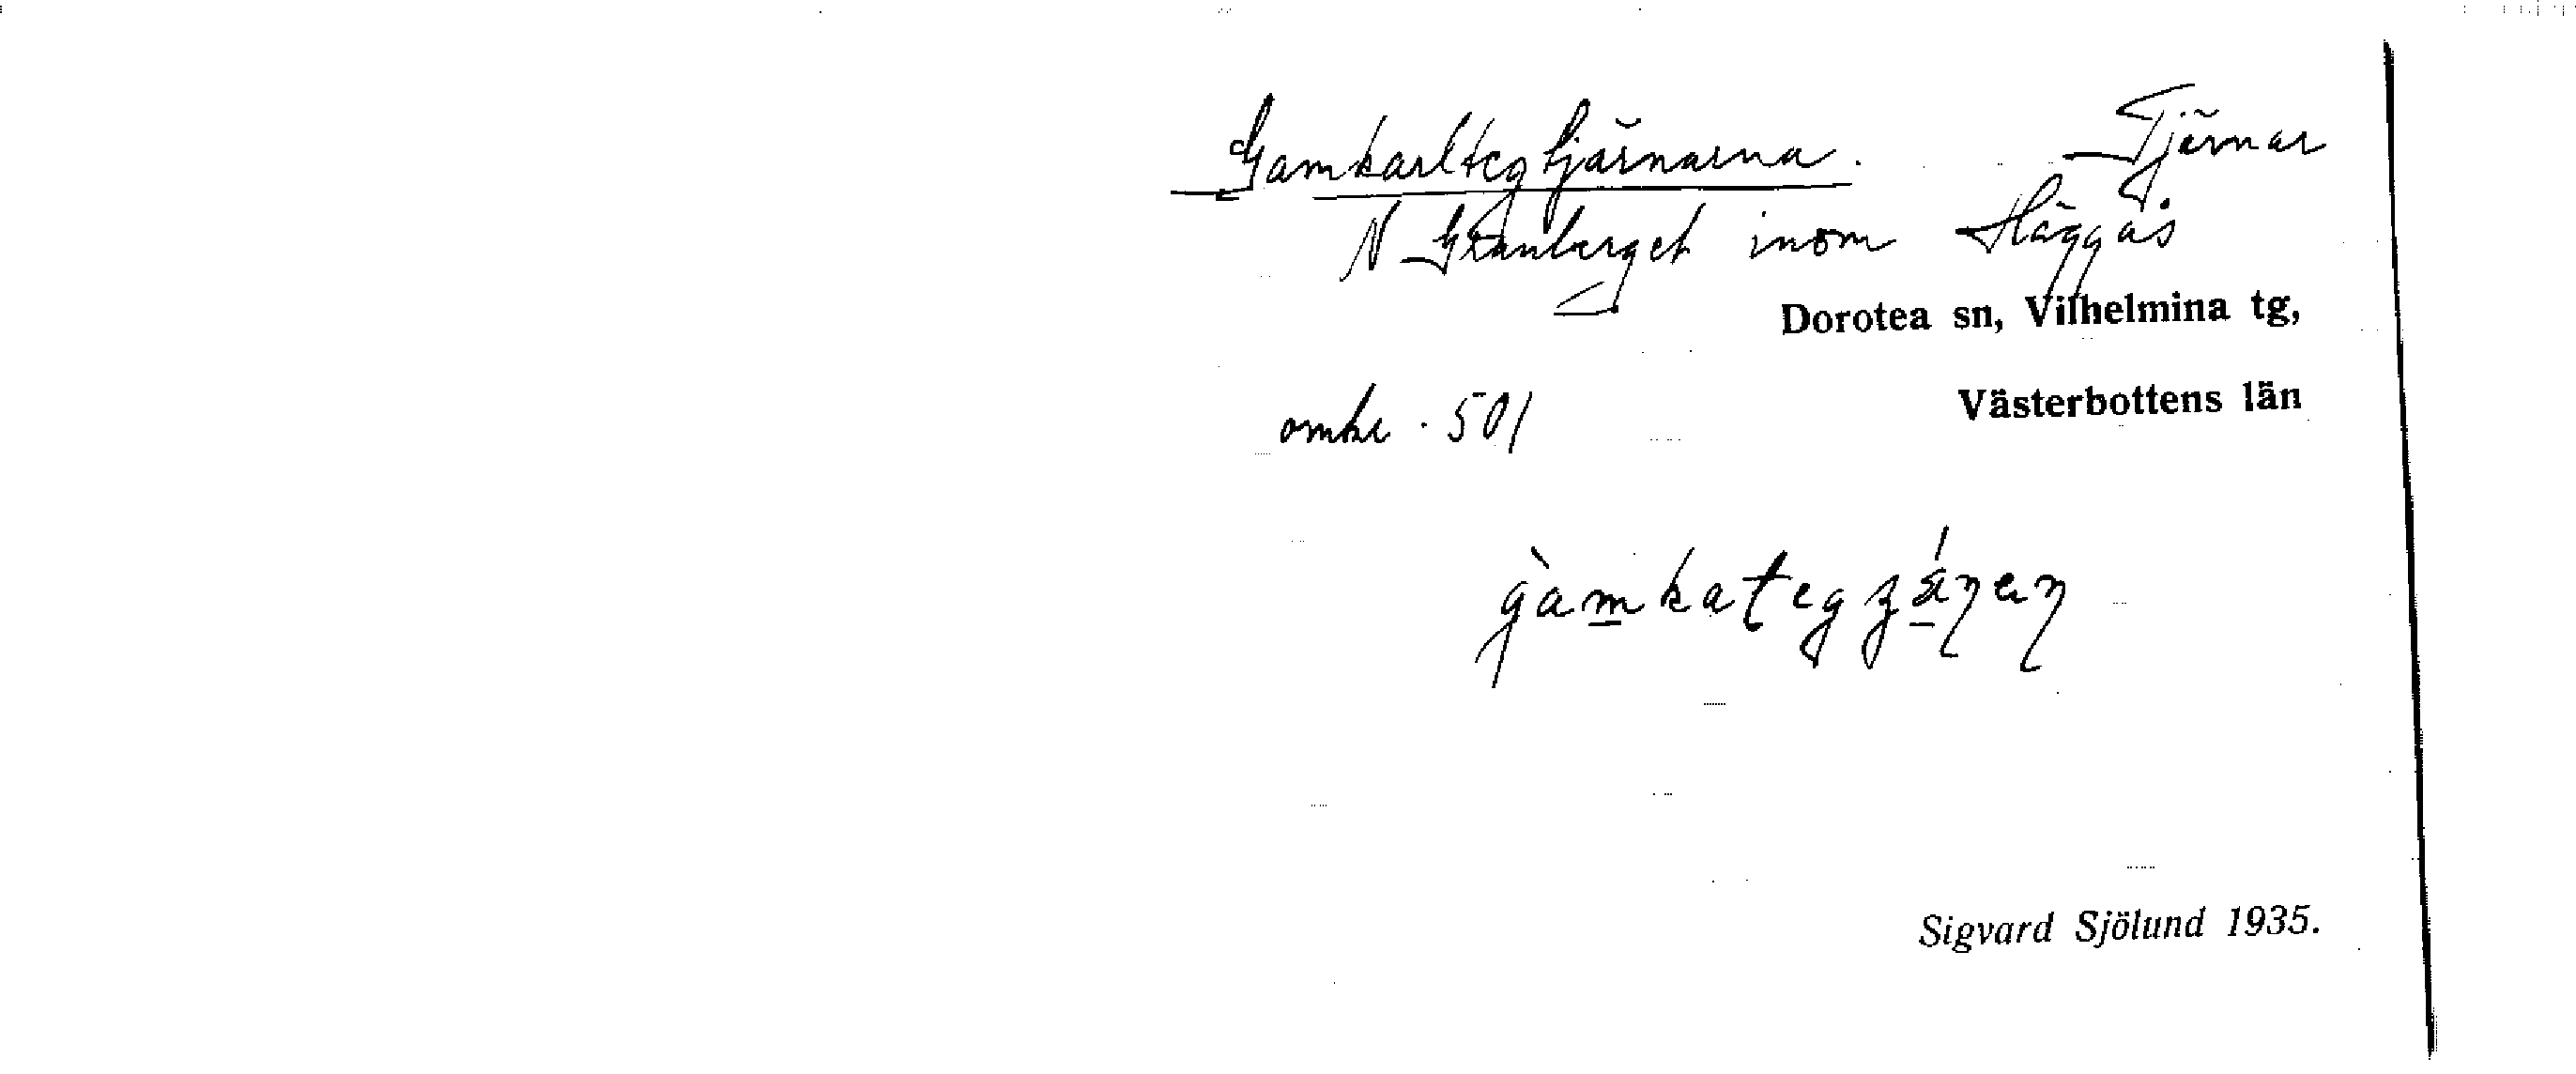 Gamkarltegtjärnarna. Tjärnar
N Granberget inom Häggås
Dorotea sn, Vilhelmina tg,
Västerbottens län
501
Sigvard Sjölund 1935.